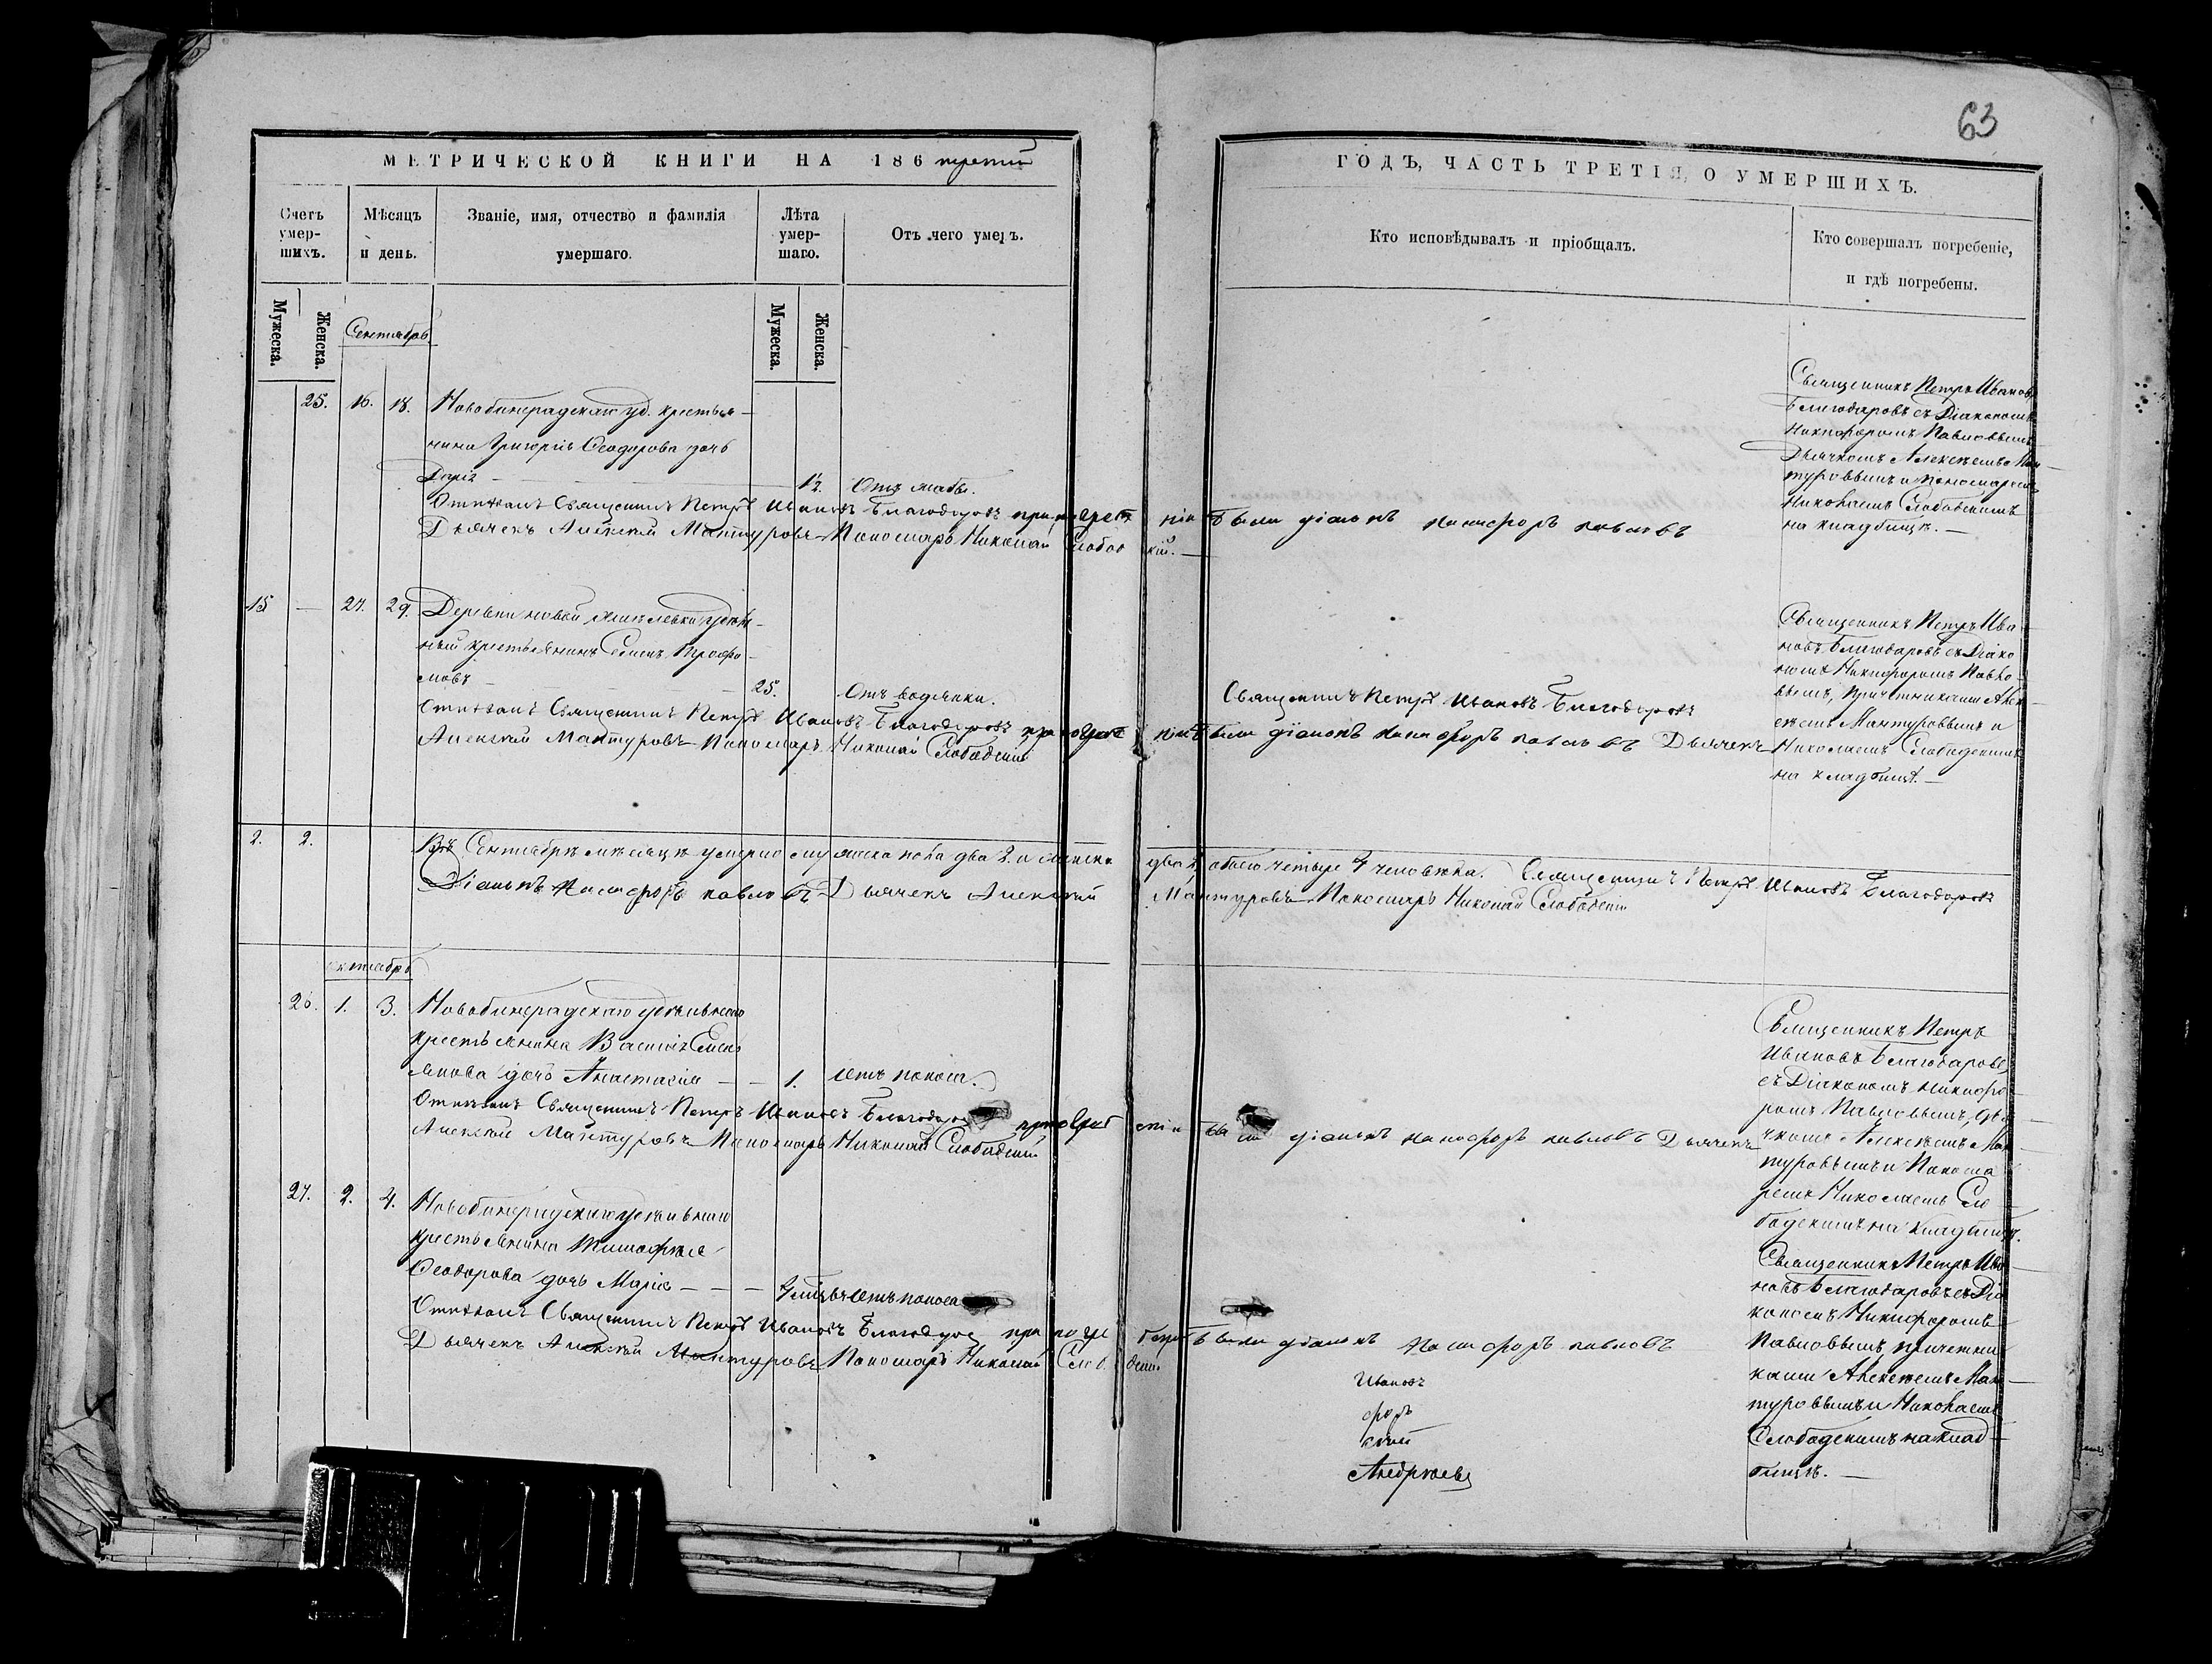 63
МЕТРИЧЕСКОЙ КНИГИ НА 186 третій
ГОДЪ, ЧАСТЬ ТРЕТІЯ, О УМЕРШИХЪ.
Счетъ умер-шихъ.
Мѣсяцъ и день.
Званіе, имя, отчество и фамилія умершаго.
Лѣта умер-шаго.
Отъ чего умеръ.
Кто исповѣдывалъ и пріобщалъ.
Кто совершалъ погребеніе,
и гдѣ погребены.
Мужеска.
Женска.
Мужеска.
Женска.
Сентябрь
25. 16. 18. уд. крестья-
нина Григорія Ѳеодорова дочь
Дарія
Отпѣвалъ Священникъ Петръ Ивановъ Благодаровъ при погребеніи были діаконъ Никифоръ Павловъ
Дьячекъ Алексѣй Мантуровъ Пономарь Николай Слобод кій.
Священникъ Петръ Ивановъ
Благодаровъ съ Діакономъ
Никифоромъ Павловымъ
Дьячкомъ Алексѣемъ Ман-
туровымъ и пономаремъ
Николаемъ Слободскимъ
на кладбищѣ.
15 — 27. 29. Деревни новой удѣль-
ный крестьянинъ
25. Отъ водянки.
Священникъ Петръ Ивановъ Благодаровъ
Отпѣвалъ Священникъ Петръ Ивановъ Благодаровъ при погребеніи были діаконъ Никифоръ Павловъ Дьячекъ
Алексѣй Мантуровъ Пономарь Николай Слободскій
Священникъ Петръ Ива-
новъ Благодаровъ съ Діако-
номъ Никифоромъ Павло-
вымъ, причетниками Алек-
сѣемъ Мантуровымъ и
Николаемъ Слободскимъ
на кладбищѣ.
2. 2. Въ Сентябрѣ мѣсяцѣ умерло мужеска пола два 2. и женска два 2 обоего четыре 4 человѣка. Священникъ Петръ Ивановъ Благодаровъ
Діаконъ Никифоръ Павловъ Дьячекъ Алексѣй Мантуровъ Пономарь Николай Слободскій
октябрь
26. 1. 3. удѣльнаго
крестьянина Василія Емель
янова дочь Анастасія — — 1. отъ поноса.
Отпѣвалъ Священникъ Петръ Ивановъ были діаконъ Никифоръ Павловъ Дьячекъ
Алексѣй Мантуровъ Пономарь Николай Слободскій
Священникъ Петръ
Ивановъ Благодаровъ
съ Діакономъ Никифо-
ромъ Павловымъ, дья-
чкомъ Алексѣемъ Ман-
туровымъ и Понома
ремъ Николаемъ Сло-
бодскимъ на кладбищѣ.
27. 2. 4. удѣльнаго
крестьянина Тимофѣя
Ѳеодорова дочь Марія — — — отъ поноса
Отпѣвалъ Священникъ Петръ Ивановъ при погребеніи были діаконъ Никифоръ Павловъ
Дьячекъ Алексѣй Мантуровъ Пономарь Николай
Ивановъ
форъ
Андрѣевъ
Священникъ Петръ Ива-
новъ Благодаровъ съ Діа-
кономъ Никифоромъ
Павловымъ, причетни-
ками Алексѣемъ Ман-
туровымъ и Николаемъ
Слободскимъ на клад-
бищѣ.